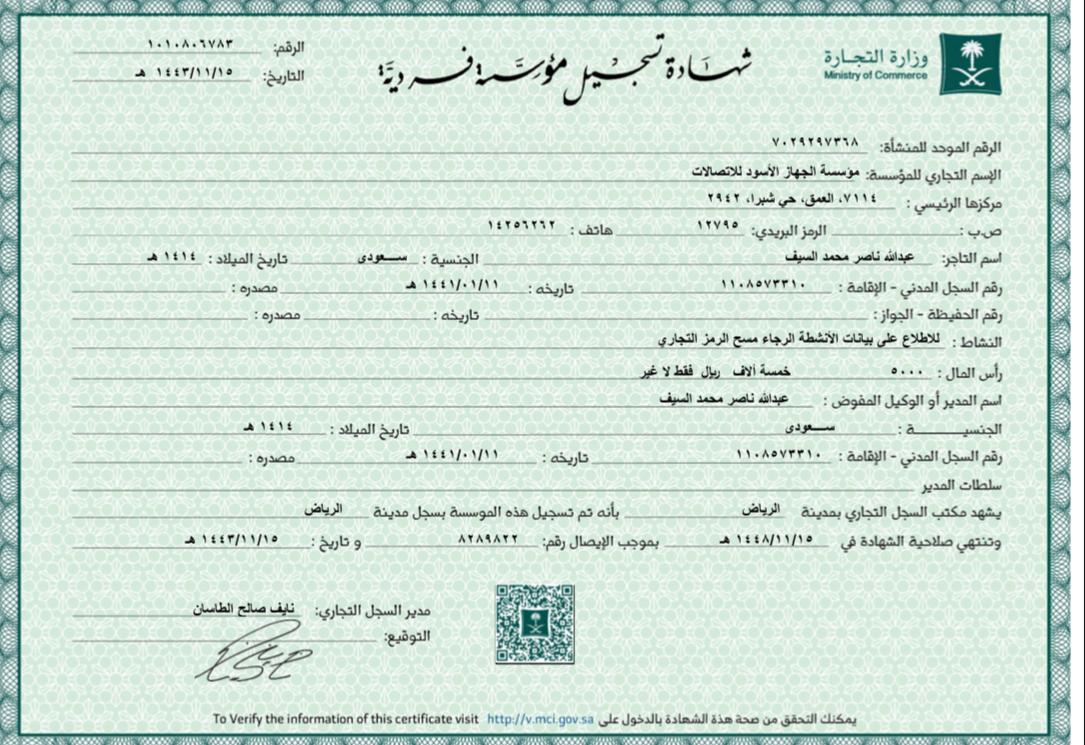 وزارة التجارة
Ministry of Commerce
شهادة تسجيل مؤسسة فردية
الرقم: ١٠١٠٨٠٦٧٨٣
التاريخ: ١٤٤٣/١١/١٥ هـ
الرقم الموحد للمنشأة: ٧٠٢٩٢٩٧٣٦٨
الإسم التجاري للمؤسسة: مؤسسة الجهاز الأسود للاتصالات
مركزها الرئيسي : ٧١١٤، العمق، حي شبرا، ٢٩٤٢
ص.ب : الرمز البريدي: ١٢٧٩٥ هاتف : ١٤٢٥٦٢٦٢
اسم التاجر: عبدالله ناصر محمد السيف الجنسية : سعودى تاريخ الميلاد : ١٤١٤ هـ
رقم السجل المدني - الإقامة : ١١٠٨٥٧٣٣١٠ تاريخه : ١٤٤١/٠١/١١ هـ مصدره :
رقم الحفيظة - الجواز : تاريخه : مصدره :
النشاط : للاطلاع على بيانات الأنشطة الرجاء مسح الرمز التجاري
رأس المال : ٥٠٠٠ خمسة آلاف ريال فقط لا غير
اسم المدير أو الوكيل المفوض : عبدالله ناصر محمد السيف
الجنسيـــــــة : سعودى تاريخ الميلاد : ١٤١٤ هـ
رقم السجل المدني - الإقامة : ١١٠٨٥٧٣٣١٠ تاريخه : ١٤٤١/٠١/١١ هـ مصدره :
سلطات المدير
يشهد مكتب السجل التجاري بمدينة الرياض بأنه تم تسجيل هذه الموسسة بسجل مدينة الرياض
وتنتهي صلاحية الشهادة في ١٤٤٨/١١/١٥ هـ بموجب الإيصال رقم: ٨٢٨٩٨٢٢ و تاريخ : ١٤٤٣/١١/١٥ هـ
مدير السجل التجاري: نايف صالح الطاسان
التوقيع:
يمكنك التحقق من صحة هذة الشهادة بالدخول على http://v.mci.gov.sa To Verify the information of this certificate visit